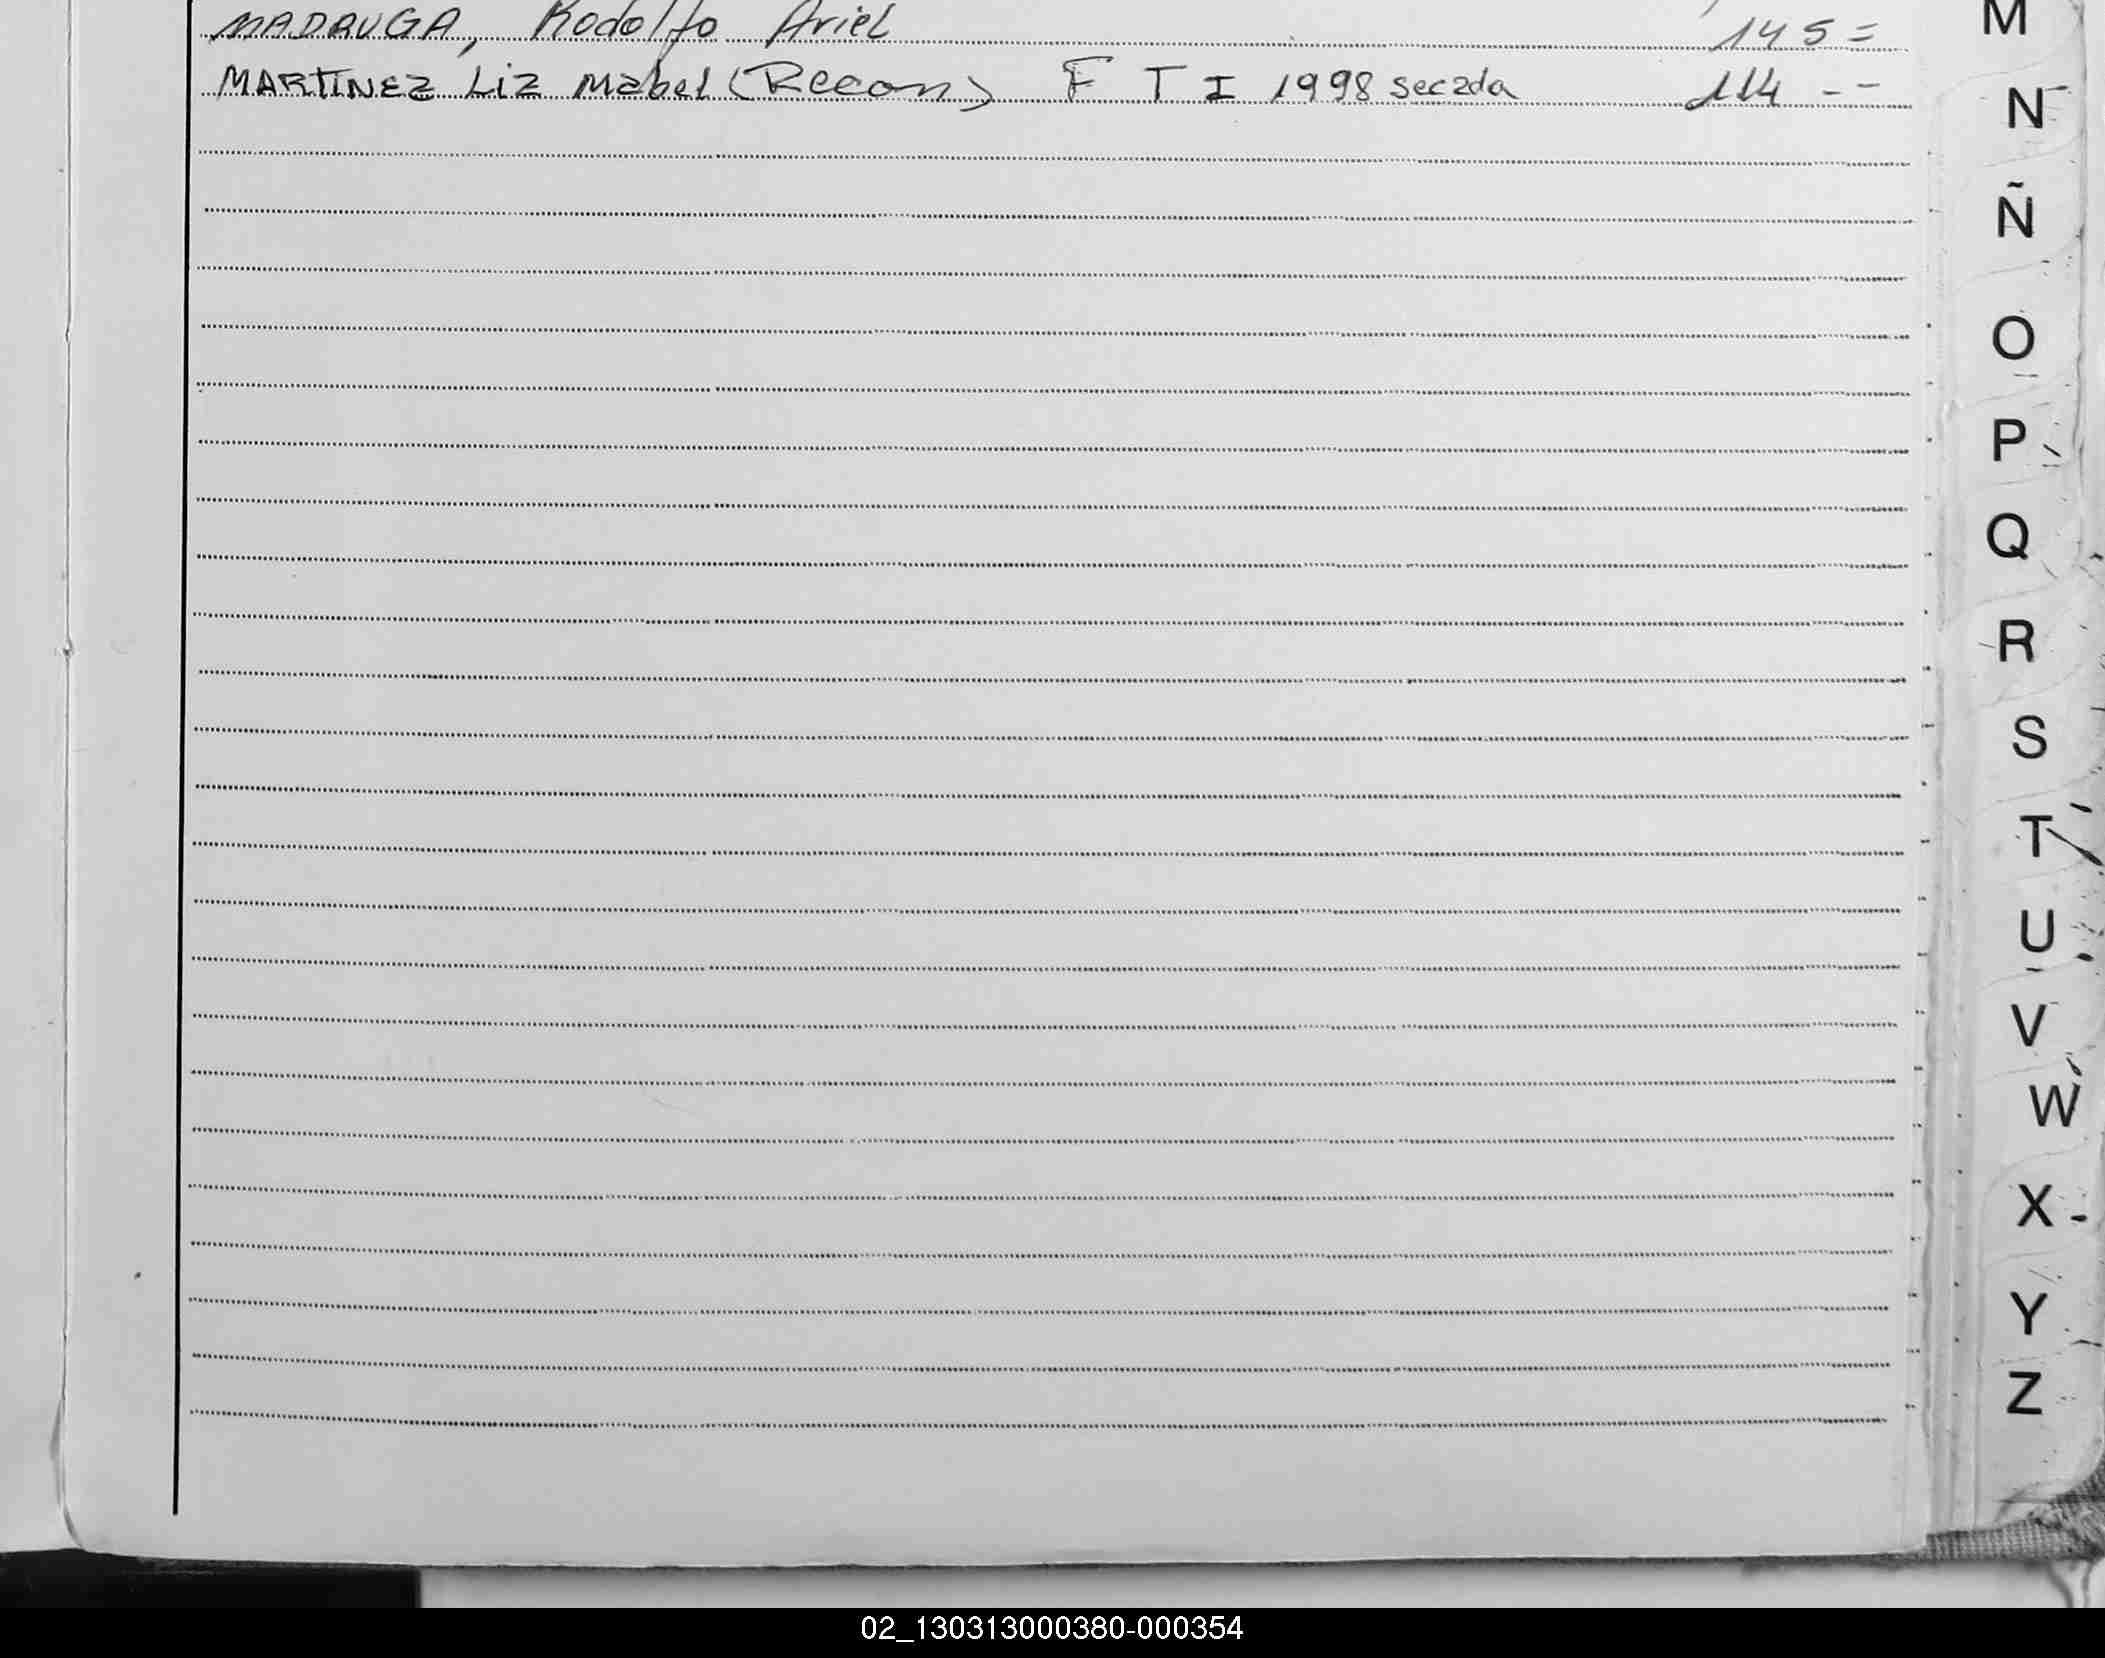 MADRUGA, Rodolfo Ariel 145=
MARTINEZ Liz Mabel (Recon) F T I 1998 secada 114 --
M
N
Ñ
O
P
Q
R
S
T
U
V
W
X
Y
Z
02_130313000380-000354